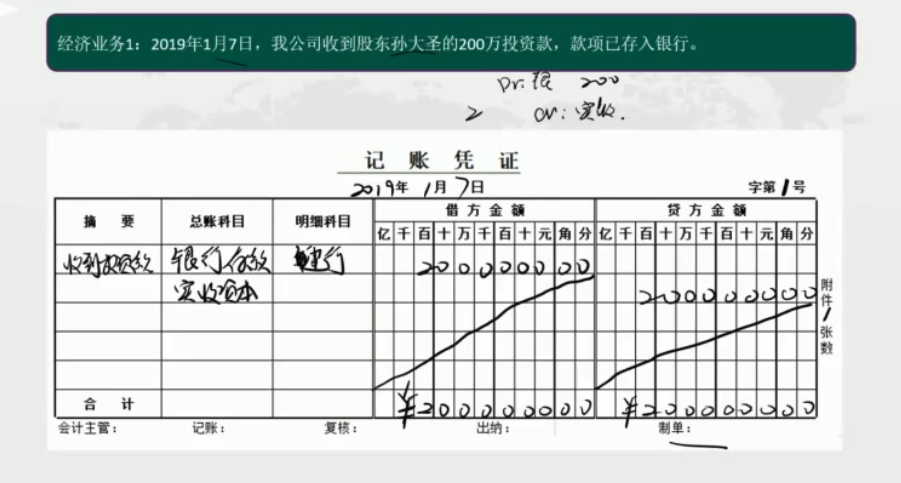 经济业务1：2019年1月7日，我公司收到股东孙大圣的200万投资款，款项已存入银行。
Dr: 银 200
2 Cr: 实收.
记 账 凭 证
2019年 1月 7日 字第 1 号
摘 要 总账科目 明细科目 借方金额 贷方金额
亿 千 百 十 万 千 百 十 元 角 分 亿 千 百 十 万 千 百 十 元 角 分
收到投资款 银行存款 建行 200000000
实收资本 200000000
附件 1 张数
合 计 ¥200000000 ¥200000000
会计主管： 记账： 复核： 出纳： 制单：